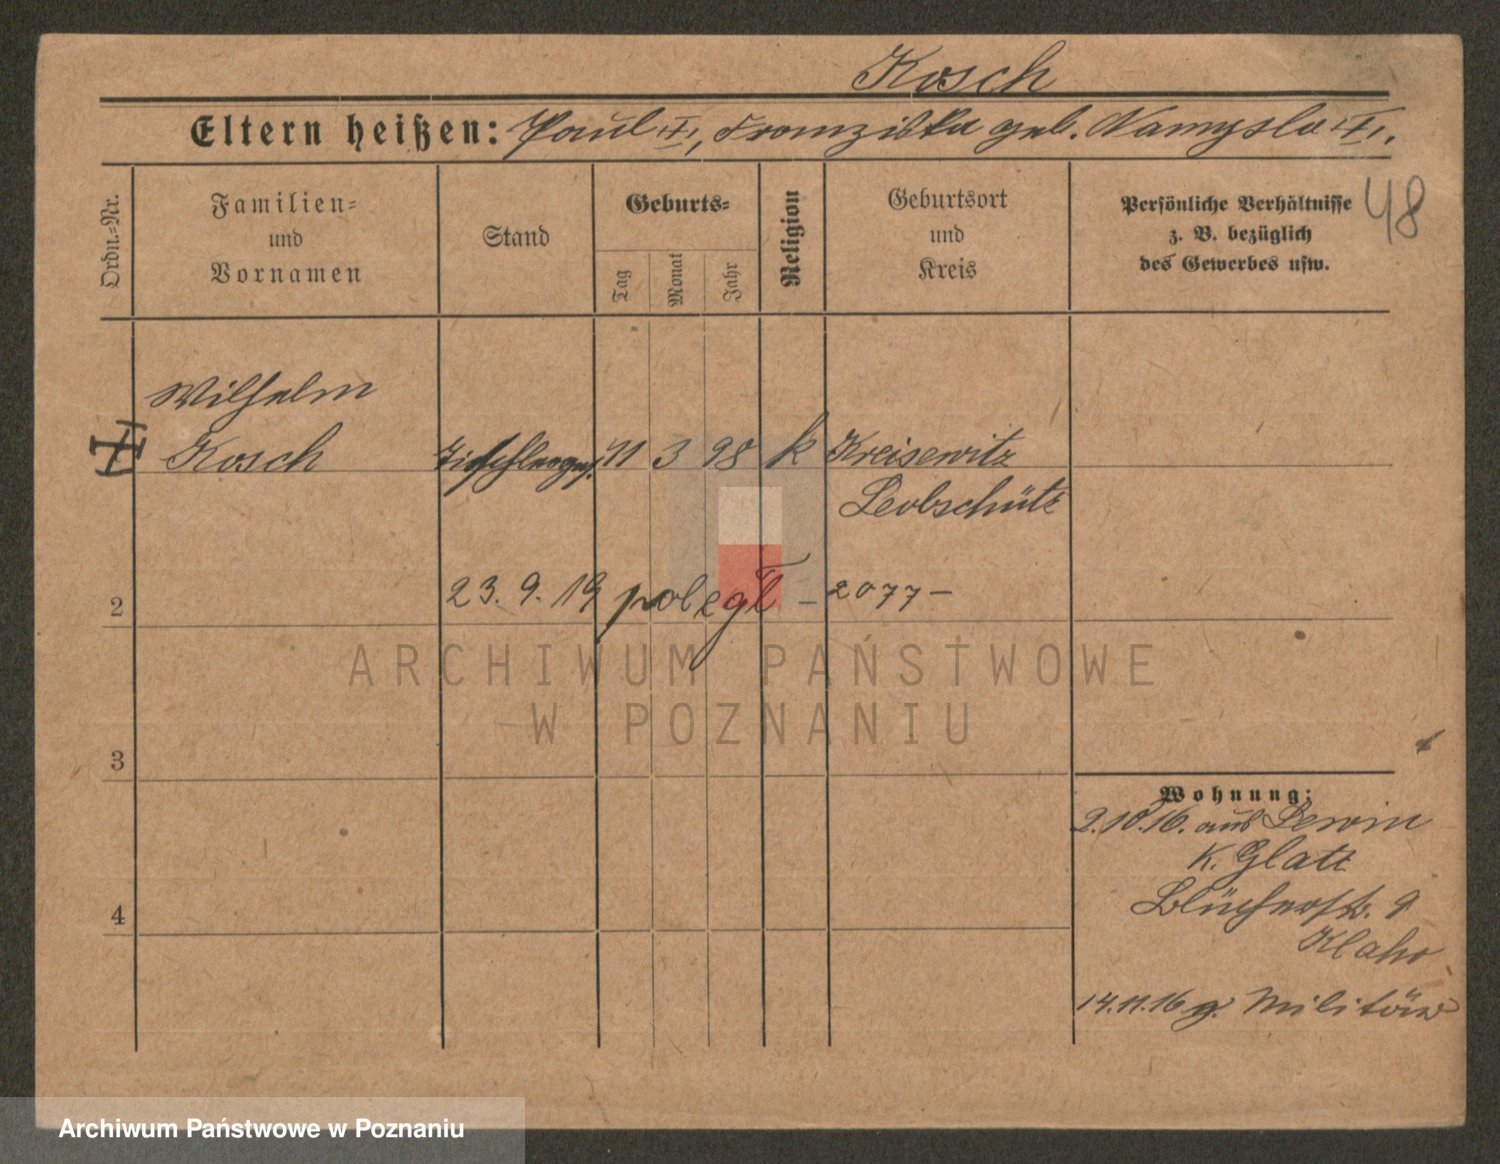 Kosch
Eltern heißen: Paul, Franziska geb. Namyslo.
48
Ordn.-Nr.
Familien-
und
Vornamen
Stand
Geburts-
Tag
Monat
Jahr
Religion
Geburtsort
und
Kreis
Persönliche Verhältnisse
z. B. bezüglich
des Gewerbes usw.
Wilhelm
Kosch Tischlerges. 11 3 98 k Kreisewitz
Leobschütz
2 23. 9. 19 – 2077 –
ARCHIWUM PAŃSTWOWE
W POZNANIU
3
4
Wohnung:
2.10.16. aus Lewin
K. Glatz
Blücherstr. 9
14.11.16 z. Militär
Archiwum Państwowe w Poznaniu